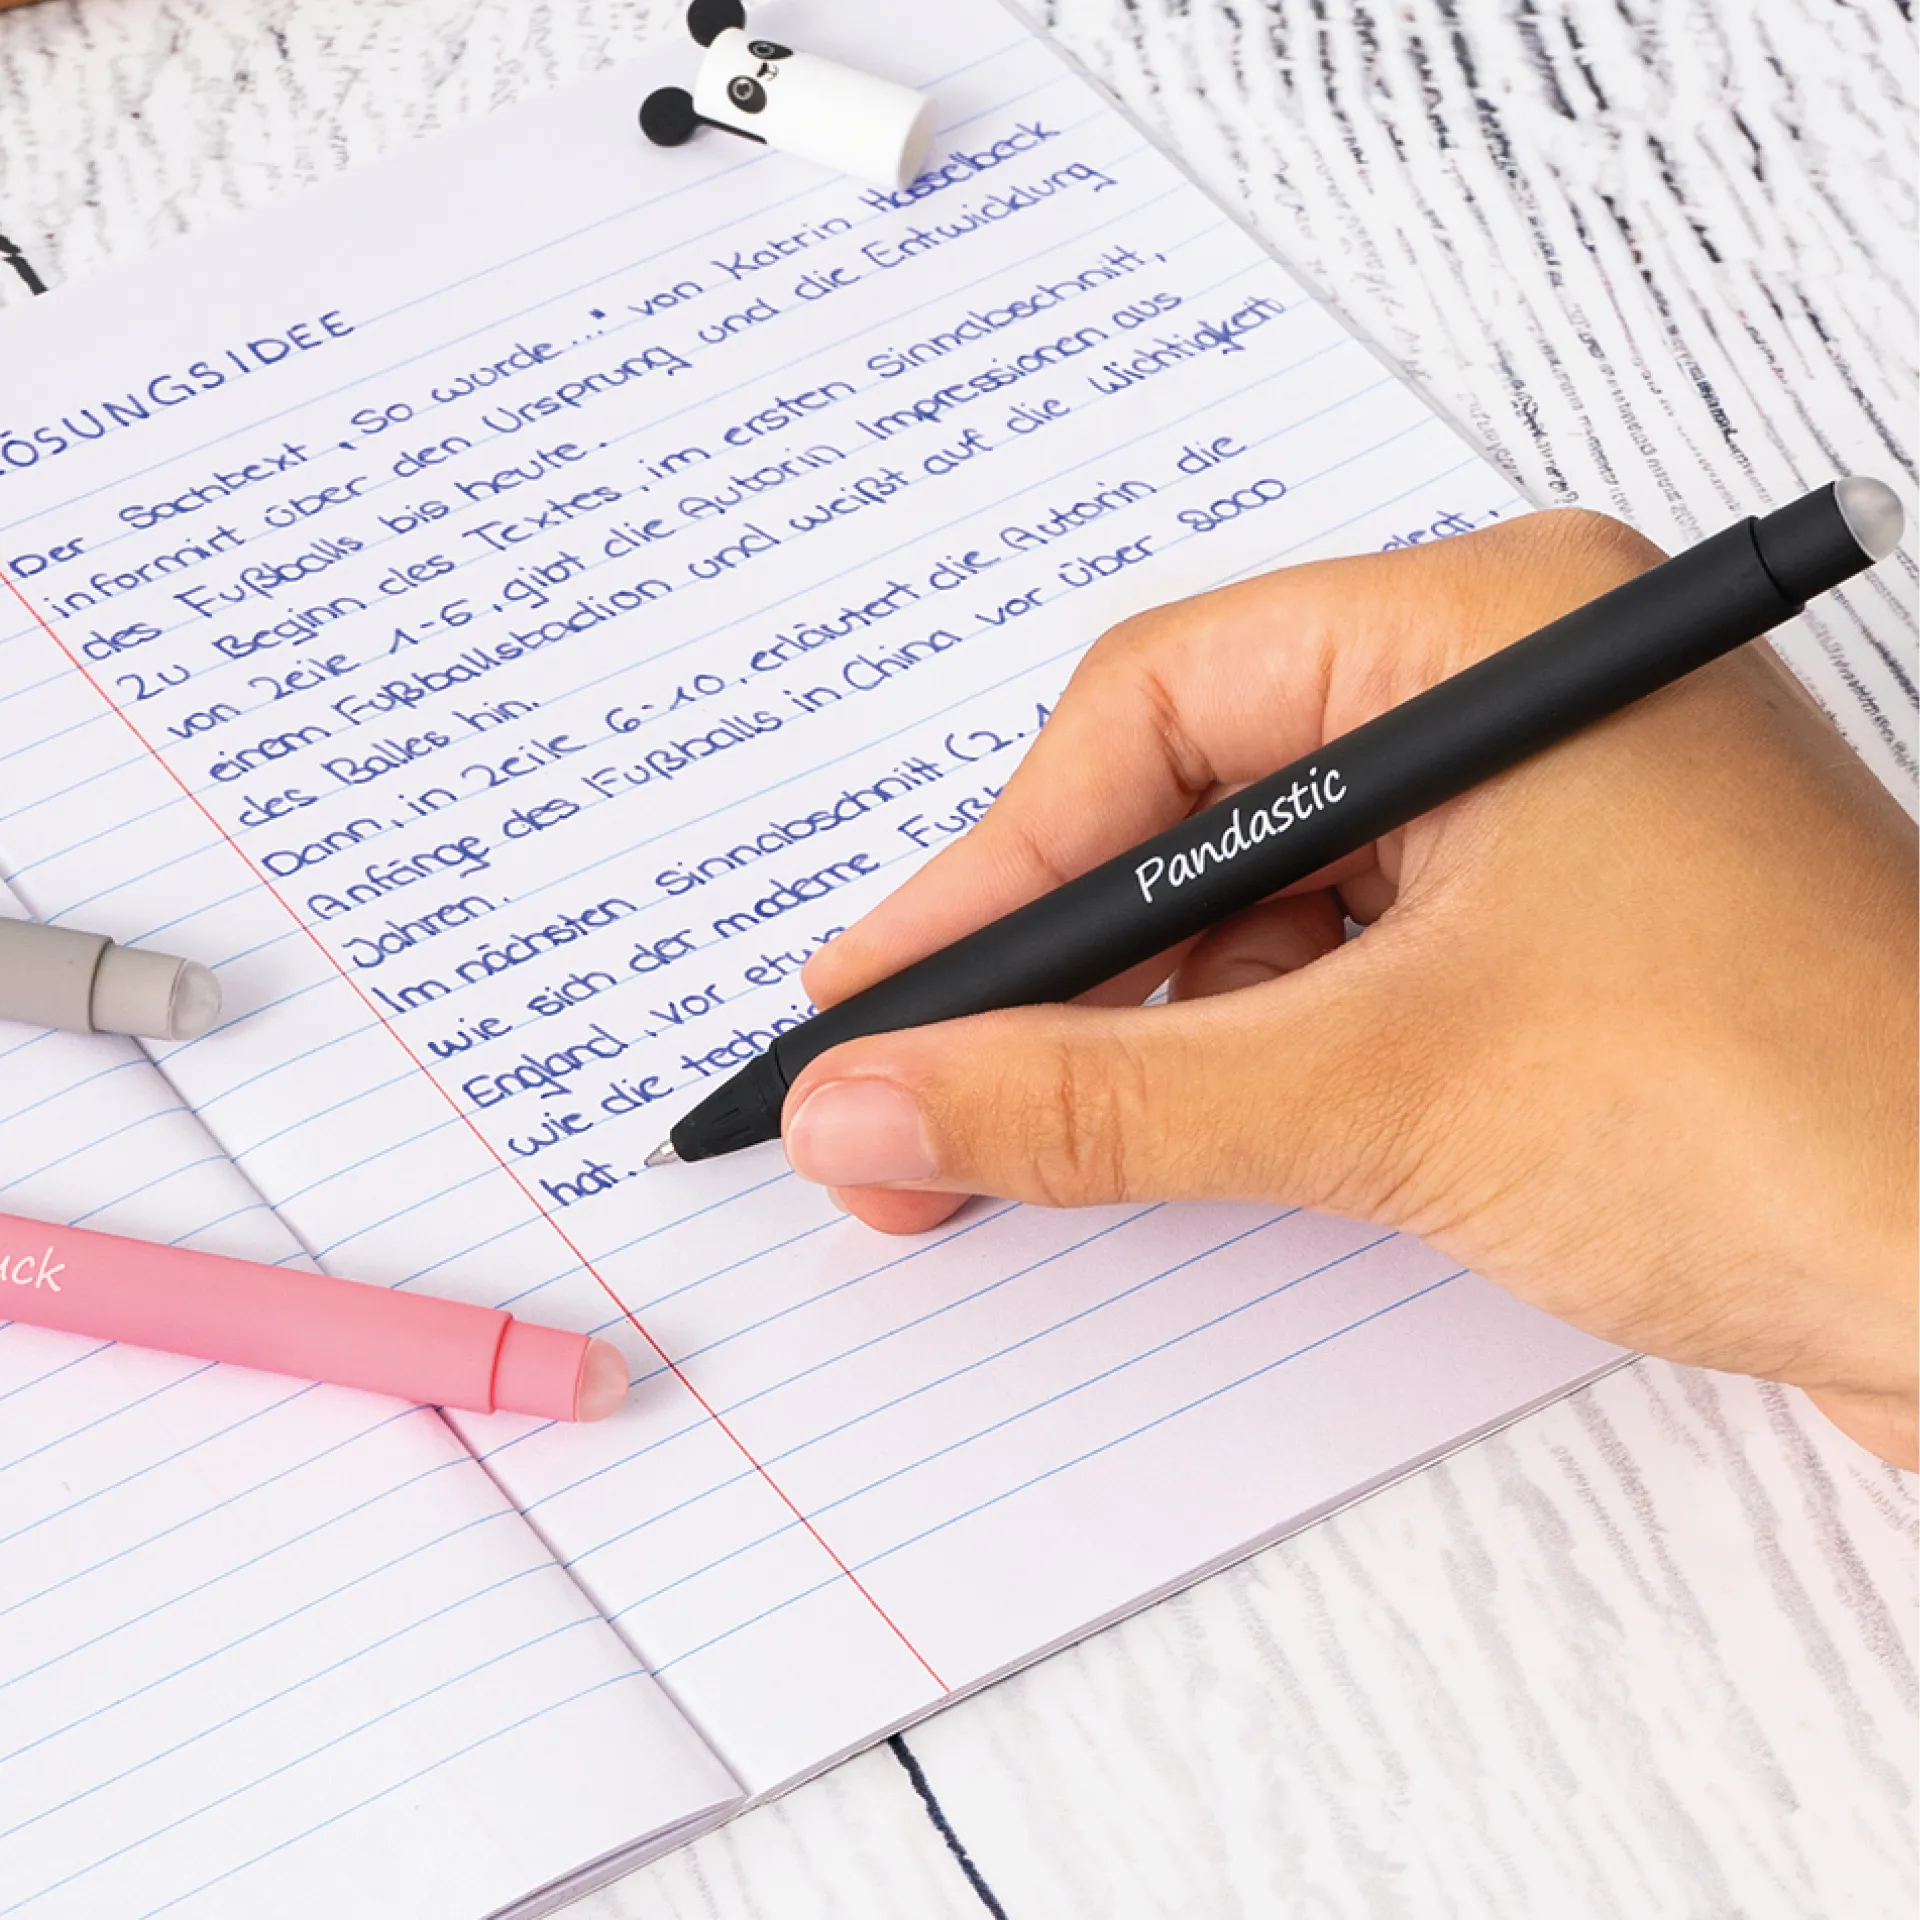 LÖSUNGSIDEE
Der Sachtext „So wurde..." von Katrin Hasselbeck
informirt über den Ursprung und die Entwicklung
des Fußballs bis heute.
Zu Beginn des Textes, im ersten Sinnabschnitt,
von Zeile 1-6, gibt die Autorin Impressionen aus
einem Fußballstadion und weißt auf die Wichtigkeit
des Balles hin.
Dann, in Zeile 6-10, erläutert die Autorin die
Anfänge des Fußballs in China vor über 2000
Jahren.
Im nächsten Sinnabschnitt (Z. 1
wie sich der moderne
England, vor
wie die
hat.
Pandastic
uck